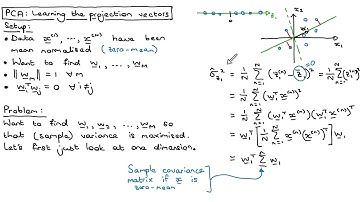 PCA: Learning the projection vectors
Setup:
• Data x⁽¹⁾, ..., x⁽ᴺ⁾ have been
mean normalised (zero-mean)
• Want to find w₁, ..., w_M
• ‖w_m‖ = 1 ∀ m
• w_iᵀw_j = 0 ∀ i≠j
Problem:
Want to find w₁, w₂, ..., w_M so
that (sample) variance is maximised.
Let's first just look at one dimension.
z₁
x₂
x₁
σ̂²_{z₁} = 1/N Σ_{n=1}^{N} (z₁⁽ⁿ⁾ - z̄₁)² = 1/N Σ_{n=1}^{N} (z₁⁽ⁿ⁾)²
= 1/N Σ_{n=1}^{N} (w₁ᵀ x⁽ⁿ⁾)²
= 1/N Σ_{n=1}^{N} (w₁ᵀ x⁽ⁿ⁾)(w₁ᵀ x⁽ⁿ⁾)ᵀ
= w₁ᵀ [1/N Σ_{n=1}^{N} x⁽ⁿ⁾(x⁽ⁿ⁾)ᵀ] w₁
= w₁ᵀ Σ̂ w₁
Sample covariance
matrix if x is
zero-mean